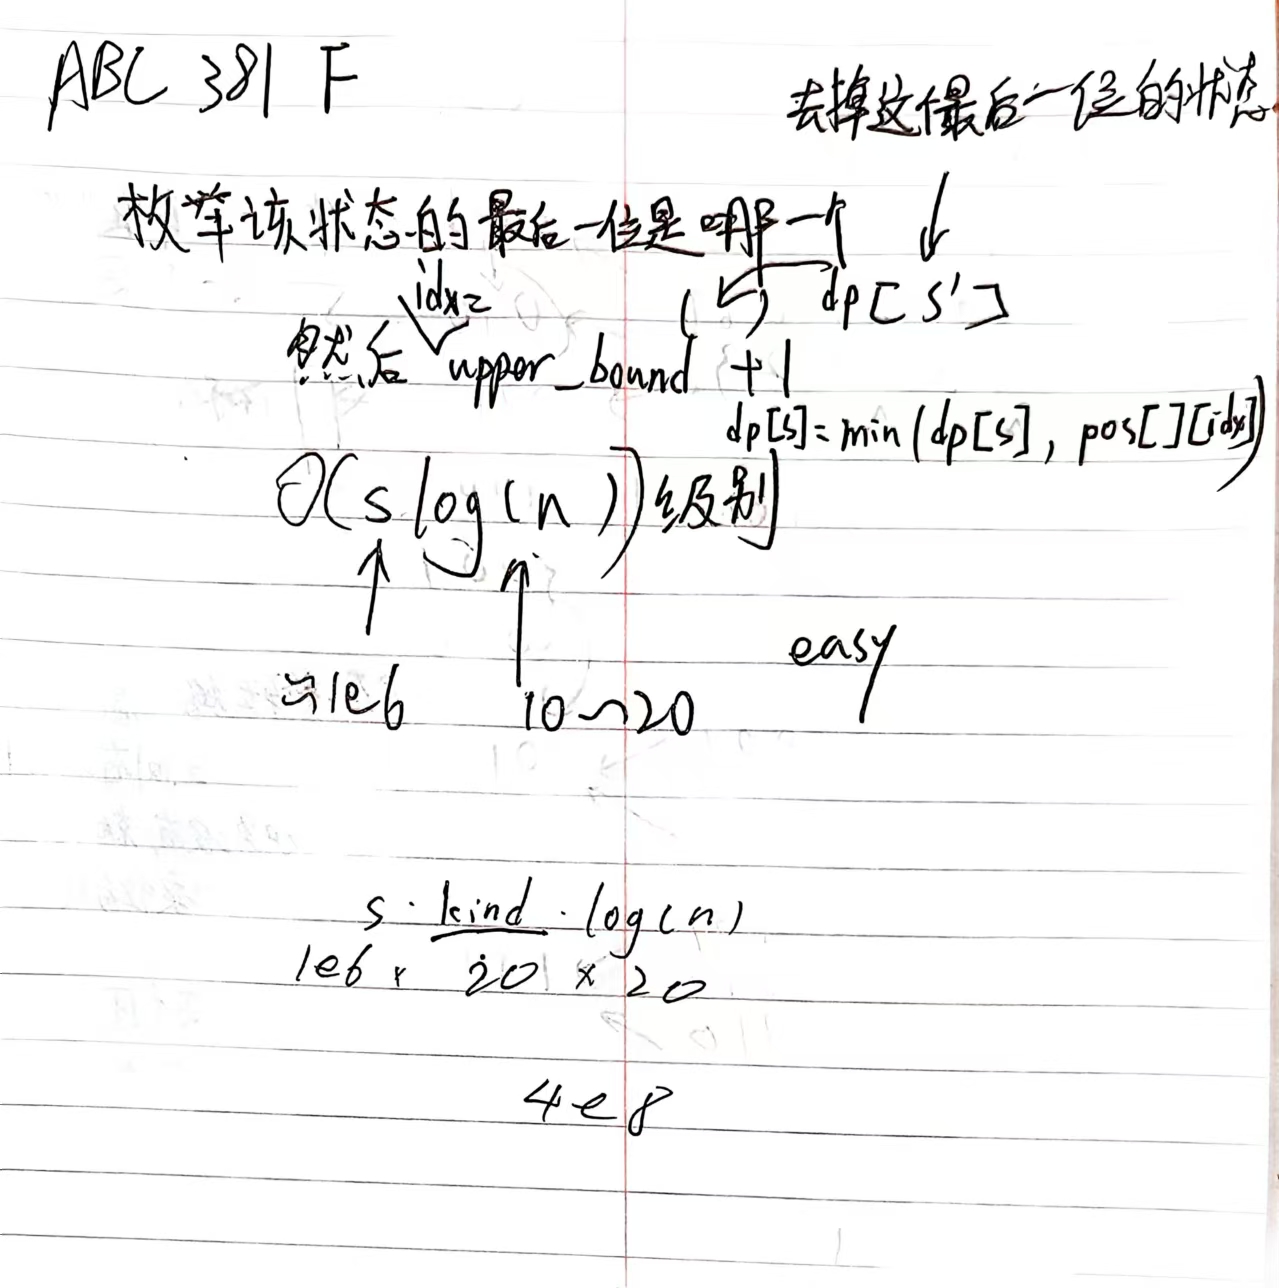 ABC 381 F
去掉这个最后一位的状态
枚举该状态的最后一位是哪一个
idx=
( ) dp[s']
然后 upper_bound +1
dp[s]=min(dp[s], pos[][idx])
O(s log(n))级别
≈1e6 10~20
easy
s · kind · log(n)
1e6 × 20 × 20
4e8